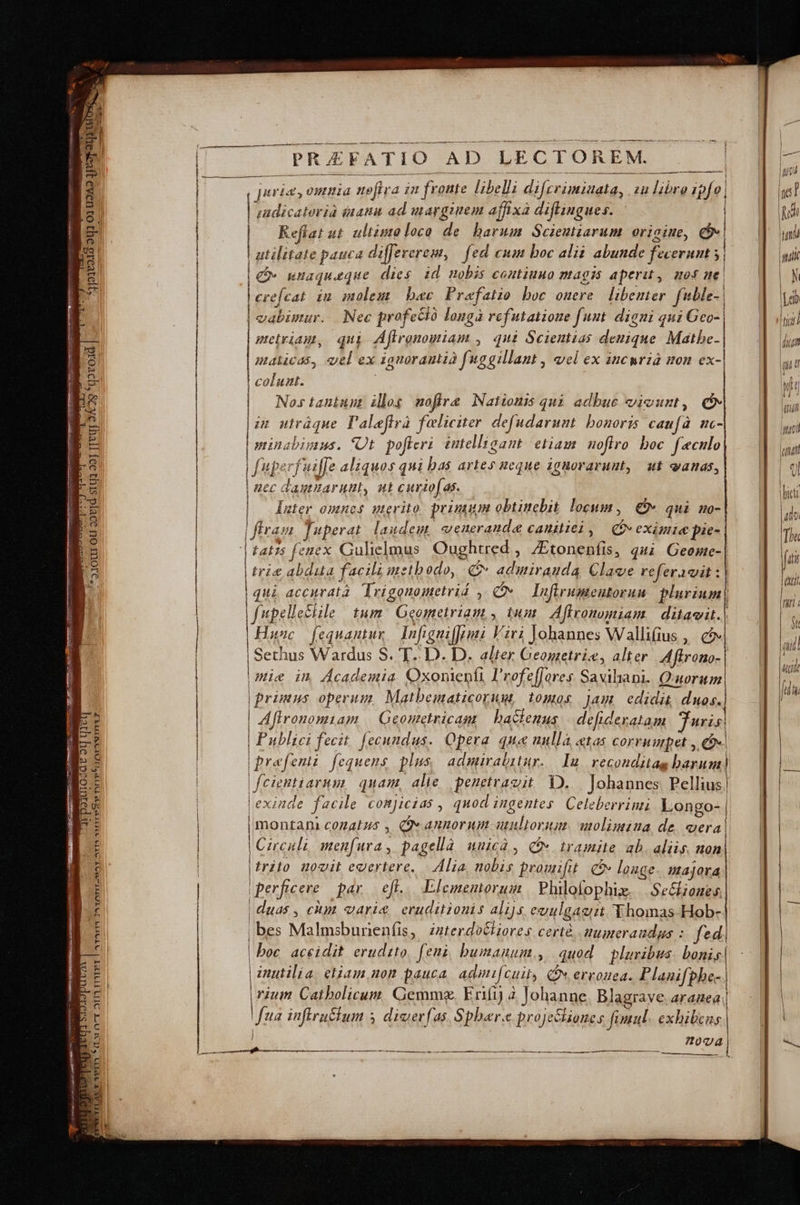 PRÆFATIO AD LECTOREM.
juriæ, omnia nostra in fronte libelli discriminata, in libro ipso
indicatoriâ manu ad marginem affixâ distingues.
Restat ut ultimo loco de harum Scientiarum origine, &
utilitate pauca dissererem, sed cum hoc alii abunde fecerunt;
& unaquæque dies id nobis continuo magis aperit, nos ne
crescat in molem hæc Præfatio hoc onere libenter suble-
vabimur. Nec profectò longâ refutatione sunt digni qui Geo-
metriam, qui Astronomiam, qui Scientias denique Mathe-
maticas, vel ex ignorantiâ suggillant, vel ex incuriâ non ex-
colunt.
Nos tantum illos nostræ Nationis qui adhuc vivunt, &
in utrâque Palæstrâ fœliciter desudarunt honoris causâ nc-
minabimus. Ut posteri intelligant etiam nostro hoc sæculo
superfuisse aliquos qui has artes neque ignorarunt, ut vanas,
nec damnarunt, ut curiosas.
Inter omnes merito primum obtinebit locum, & qui no-
stram superat laudem venerandæ canitiei, & eximiæ pie-
tatis senex Gulielmus Oughtred, Ætonensis, qui Geome-
triæ abdita facili methodo, & admiranda Clave reseravit:
qui accuratâ Trigonometriâ, & Instrumentorum plurium
supellectile tum Geometriam, tum Astronomiam ditavit.
Hunc sequantur Insignissimi Viri Johannes Wallisius, &
Sethus Wardus S. T. D. D. alter Geometriæ, alter Astrono-
miæ in Academia Oxoniensi Professores Saviliani. Quorum
primus operum Mathematicorum tomos jam edidit duos.
Astronomiam Geometricam hactenus desideratam Juris
Publici fecit secundus. Opera quæ nulla ætas corrumpet, &
præsenti sequens plus admirabitur. In reconditas harum
scientiarum quam alte penetravit D. Johannes Pellius
exinde facile conjicias, quod ingentes Celeberrimi Longo-
montani conatus, & annorum multorum molimina de vera
Circuli mensura, pagellâ unicâ, & tramite ab aliis non
trito novit evertere. Alia nobis promisit & longe majora
perficere par est. Elementorum Philosophiæ Sectiones
duas, cùm variæ eruditionis alijs evulgavit Thomas Hob-
bes Malmsburiensis, interdoctiores certè numerandus: sed
hoc accidit erudito seni humanum, quod pluribus bonis
inutilia etiam non pauca admiscuit, & erronea. Planisphæ-
rium Catholicum Gemmæ Frisij à Johanne Blagrave aranea
sua instructum; diversas Sphæræ projectiones simul exhibens
nova